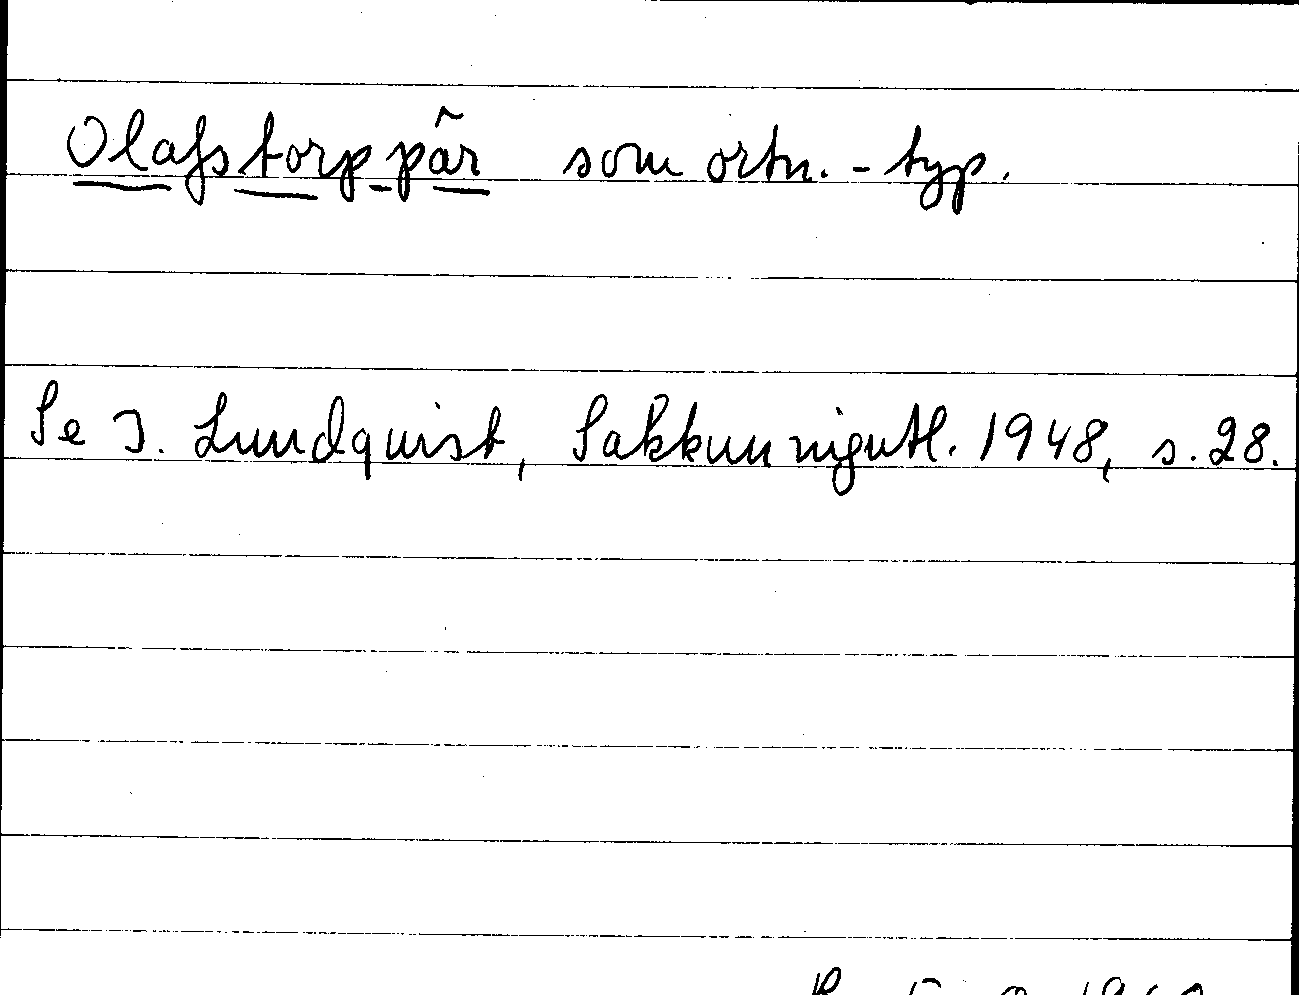 Olafstorp-pär som ortn.-typ.
Se I. Lundquist, Sakkunnigutl. 1948, s. 28.